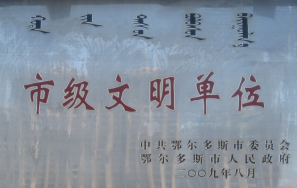 市级文明单位
中共鄂尔多斯市委员会
鄂尔多斯市人民政府
二〇〇九年八月